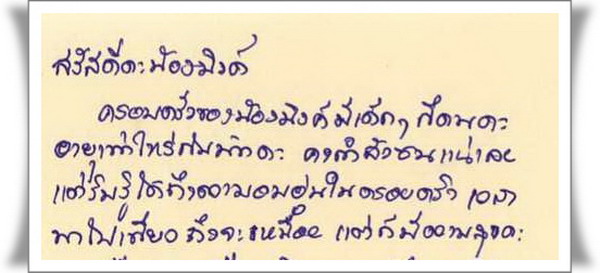 สวัสดีค่ะน้องมิงค์
ครอบครัวของน้องมิงค์มีเด็กๆ กี่คนคะ
อายุเท่าไหร่กันบ้างคะ คงกำลังซนแน่เลย
แต่รับรู้ได้ถึงความอบอุ่นในครอบครัว เวลา
พาไปเที่ยว ถึงจะเหนื่อย แต่ก็มีความสุขคะ